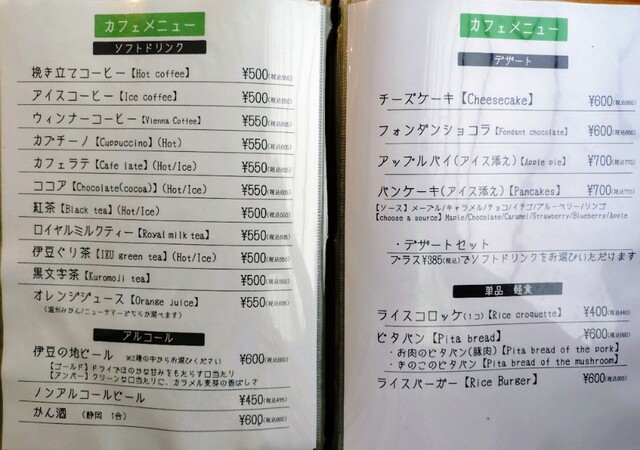 カフェメニュー
ソフトドリンク
挽き立てコーヒー【Hot coffee】 ¥500(税込550)
アイスコーヒー【Ice coffee】 ¥500(税込550)
ウィンナーコーヒー【Vienna Coffee】 ¥550(税込605)
カプチーノ【Cuppuccino】(Hot) ¥550(税込605)
カフェラテ【Cafe late】(Hot/Ice) ¥550(税込605)
ココア【Chocolate(cocoa)】(Hot/Ice) ¥550(税込605)
紅茶【Black tea】(Hot/Ice) ¥500(税込550)
ロイヤルミルクティー【Royal milk tea】 ¥550(税込605)
伊豆ぐり茶【IKU green tea】(Hot/Ice) ¥500(税込550)
黒文字茶【Kuromoji tea】 ¥500(税込550)
オレンジジュース【Orange juice】 ¥550(税込605)
(温州みかん/ニューサマーどちらか選べます)
アルコール
伊豆の地ビール ※2種の中からお選びください ¥600(税込660)
【ゴールド】ドライでほのかな甘みをもたらす口当たり
【アンバー】クリーンな口当たりに、カラメル麦芽の香ばしさ
ノンアルコールビール ¥450(税込495)
かん酒 (静岡 1合) ¥600(税込660)
カフェメニュー
デザート
チーズケーキ【Cheesecake】 ¥600(税込660)
フォンダンショコラ【Fondant chocolate】 ¥600(税込660)
アップルパイ(アイス添え)【Apple pie】 ¥700(税込770)
パンケーキ(アイス添え)【Pancakes】 ¥700(税込770)
【ソース】メープル/キャラメル/チョコ/イチゴ/ブルーベリー/リンゴ
【choose a source】Maple/Chocolate/Caramel/Strawberry/Blueberry/Apple
・デザートセット
プラス¥385(税込)でソフトドリンクをお選びいただけます
単品 軽食
ライスコロッケ(1コ)【Rice croquette】 ¥400(税込440)
ピタパン【Pita bread】 ¥600(税込660)
・お肉のピタパン(豚肉)【Pita bread of the pork】
・きのこのピタパン【Pita bread of the mushroom】
ライスバーガー【Rice Burger】 ¥600(税込660)